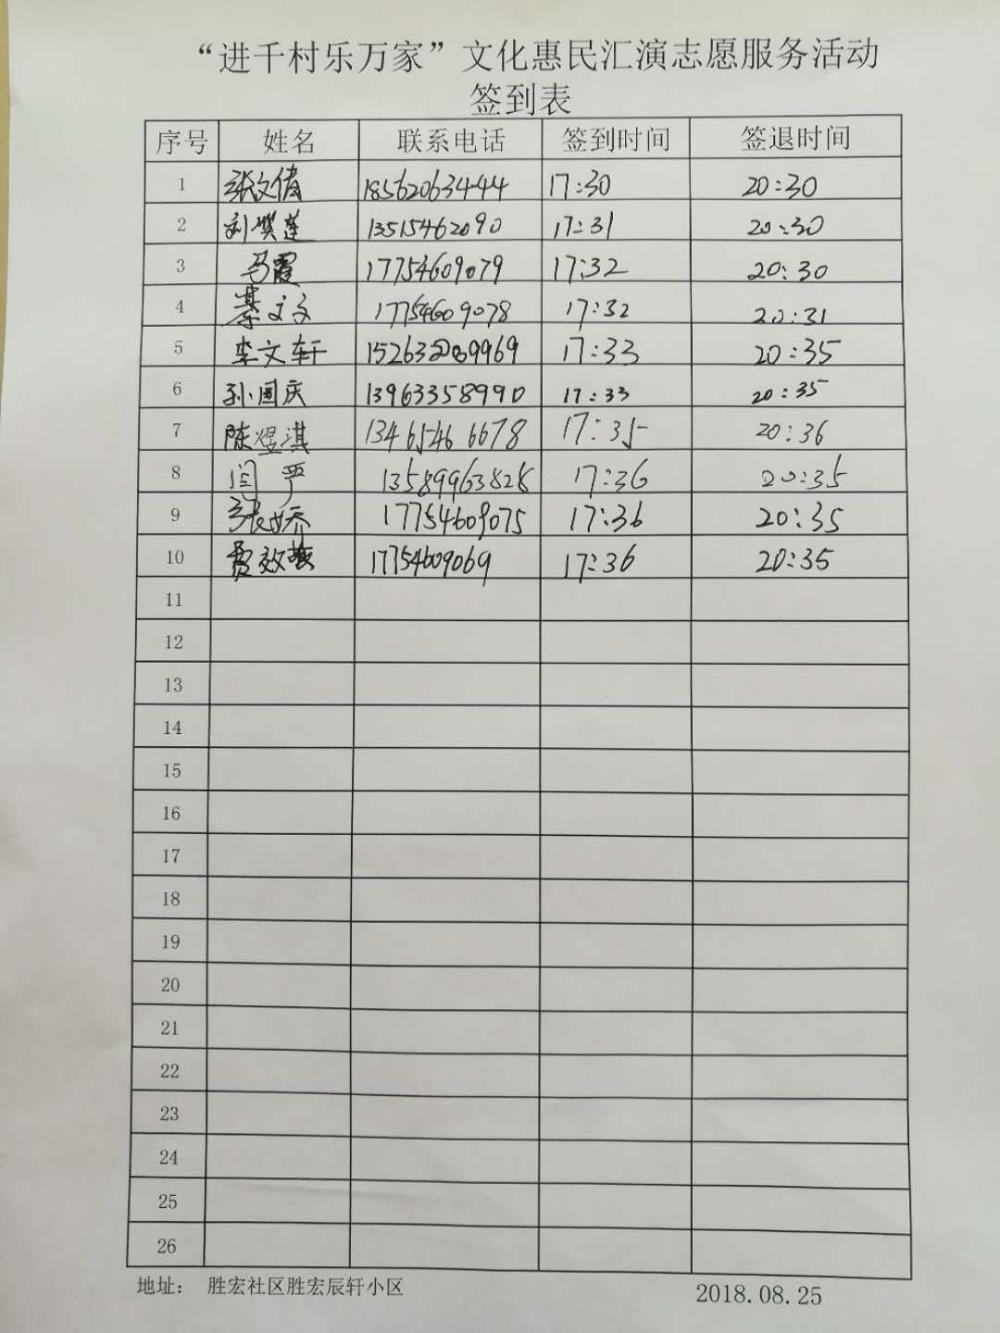 “进千村乐万家”文化惠民汇演志愿服务活动
签到表
序号 姓名 联系电话 签到时间 签退时间
1 张文倩 18562063444 17:30 20:30
2 刘 莲 13515462090 17:31 20:30
3 马霞 17754609079 17:32 20:30
4 綦文文 17754609078 17:32 20:31
5 李文轩 17:33 20:35
6 孙国庆 13963358990 17:33 20:35
7 陈煜淇 13465466678 17:35 20:36
8 闫严 13589963828 17:36 20:35
9 张娇 17754609075 17:36 20:35
10 贾效 17754609069 17:36 20:35
11
12
13
14
15
16
17
18
19
20
21
22
23
24
25
26
地址： 胜宏社区胜宏辰轩小区 2018.08.25